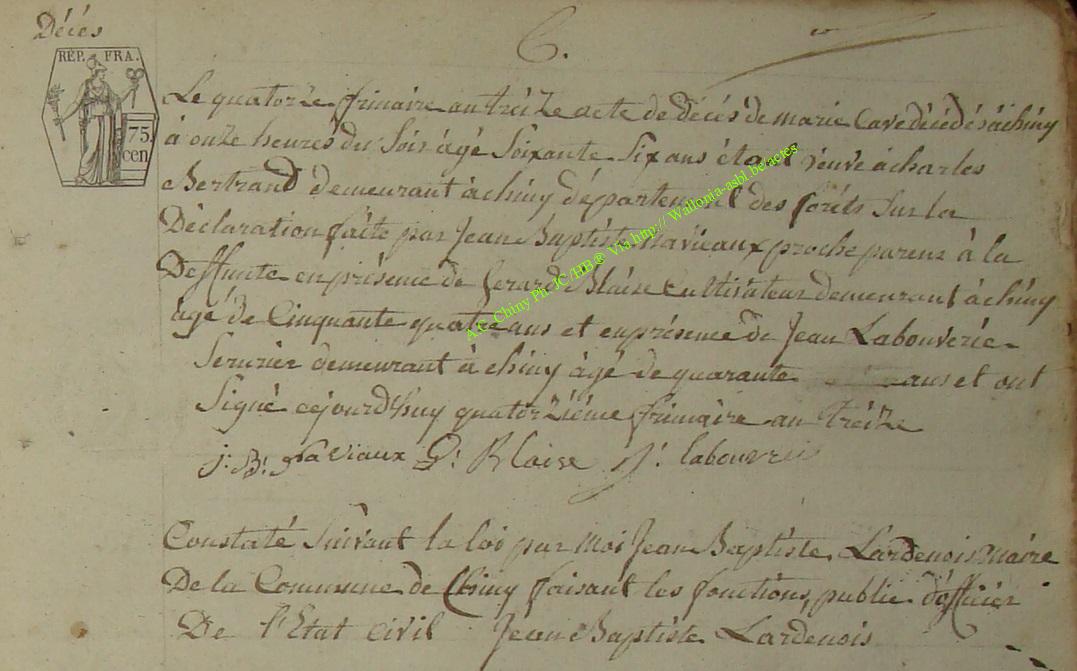 Décés
6.
RÉP. FRA.
75.
cen
Le quatorze frimaire an treize acte de décés de marie Cave décédé à chiny
à onze heures du Soir âgé Soixante Six ans étant veuve à charles
Bertrand demeurant à chiny département des forêts Sur la
Déclaration faite par Jean Baptiste Naviaux proche parent à la
Deffunte en présence de Gerard Blaise Cultivateur demeurant à chiny
âgé de Cinquante quatre ans et en présence de Jean Labouverie
Serurier demeurant à chiny âgé de quarante ans et ont
Signé cejourd'huy quatorziéme frimaire an treize
J: B: Naviaux G: Blaise J: labouverie
Constaté Suivant la loi par moi Jean Baptiste Lardenois maire
De la Commune de Chiny faisant les fonctions, public d'officier
De l'Etat civil Jean Baptiste Lardenois
A.C. Chiny Ph JC/HB® Via http:// Wallonia-asbl.be/actes